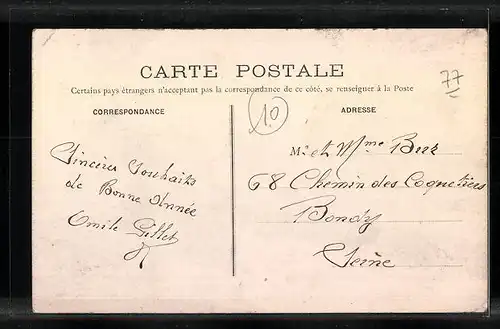 CARTE POSTALE
Certains pays étrangers n'acceptant pas la correspondance de ce côté, se renseigner à la Poste
CORRESPONDANCE
ADRESSE
77
10
Sincères Souhaits
de Bonne Année
Emile Gillet
M. et Mme
68 Chemin des Coquetiers
Bondy
Seine